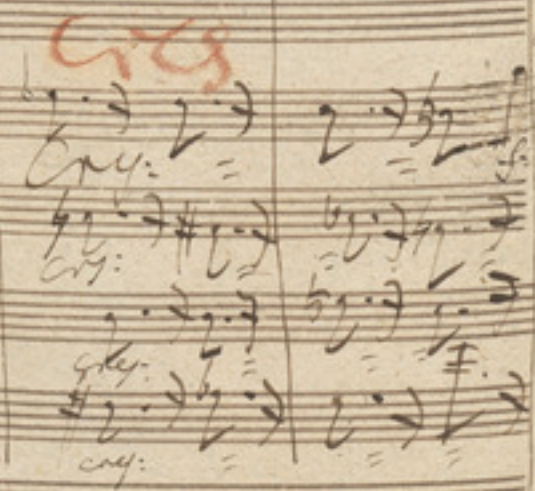 cres
Cres: = = f:
cres: = = =
cres: = = =
cres: = = =